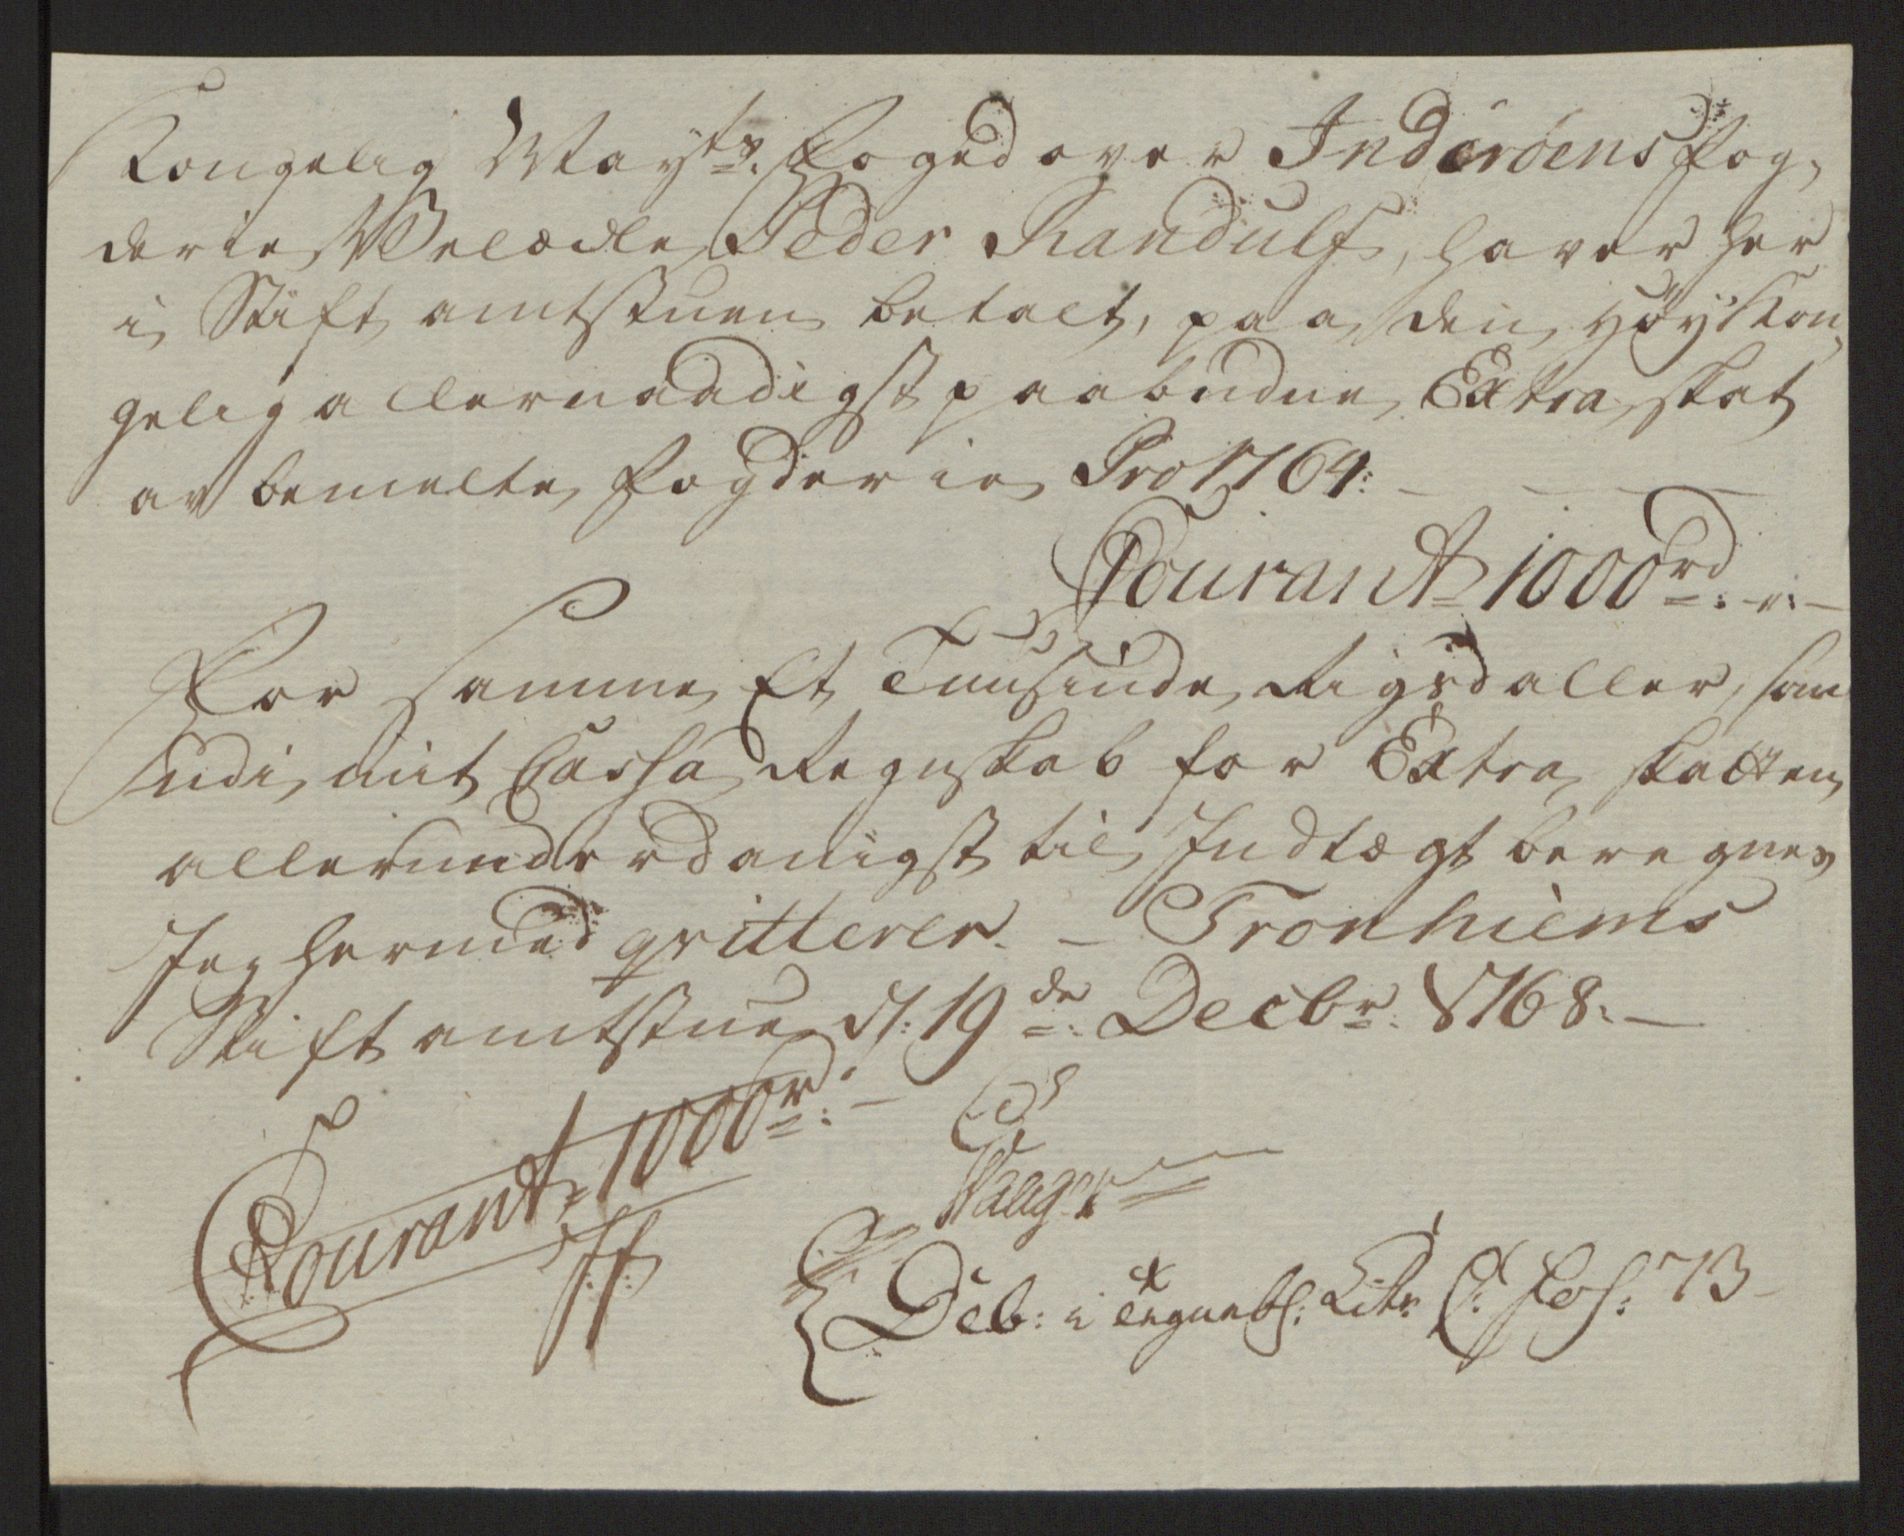 Kongelig Mayts. Foged over Inderöens Fog,
derie Velædle Peder Randulf, haver her
i Stift amtstuen betalt, paa den Høy Kon,
gelig allernaadigst paabudne Extra skat
av bemelte Fogderie Pro 1764:
Courant 1000rd:
For samme Et Tuusinde Rigsdaller, som
udi mit Cassa Regnskab for Extra skatten
allerunderdanigst til Indtægt beregnes
Jeg hermed qvitterer. – Tronhiems
Stift amtstue d: 19de Decbr: 1768. –
Courant 1000r: –
Deb: i Litr C: Fol: 73